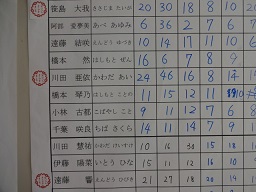 笹島 大我 ささじま たいが 20 30 18 11 10
阿部 愛夢美 あべ あゆみ 6 36 2 7 6
遠藤 結咲 えんどう ゆづき 10 14 17 8 10
橋本 然 はしもと ぜん 16 6 7 8 9
川田 亜依 かわだ あい 24 46 16 8 14
橋本 琴乃 はしもと ことの 11 15 12 11
小林 古都 こばやし こと 9 12 7 6
千葉 咲良 ちば さくら 14 11 14 7 9
川田 慧祐 かわだ けいすけ 10 16 30 15 18
伊藤 陽菜 いとう ひな 15 11 12 16 10
遠藤 響 えんどう ひびき 21 27 18 20